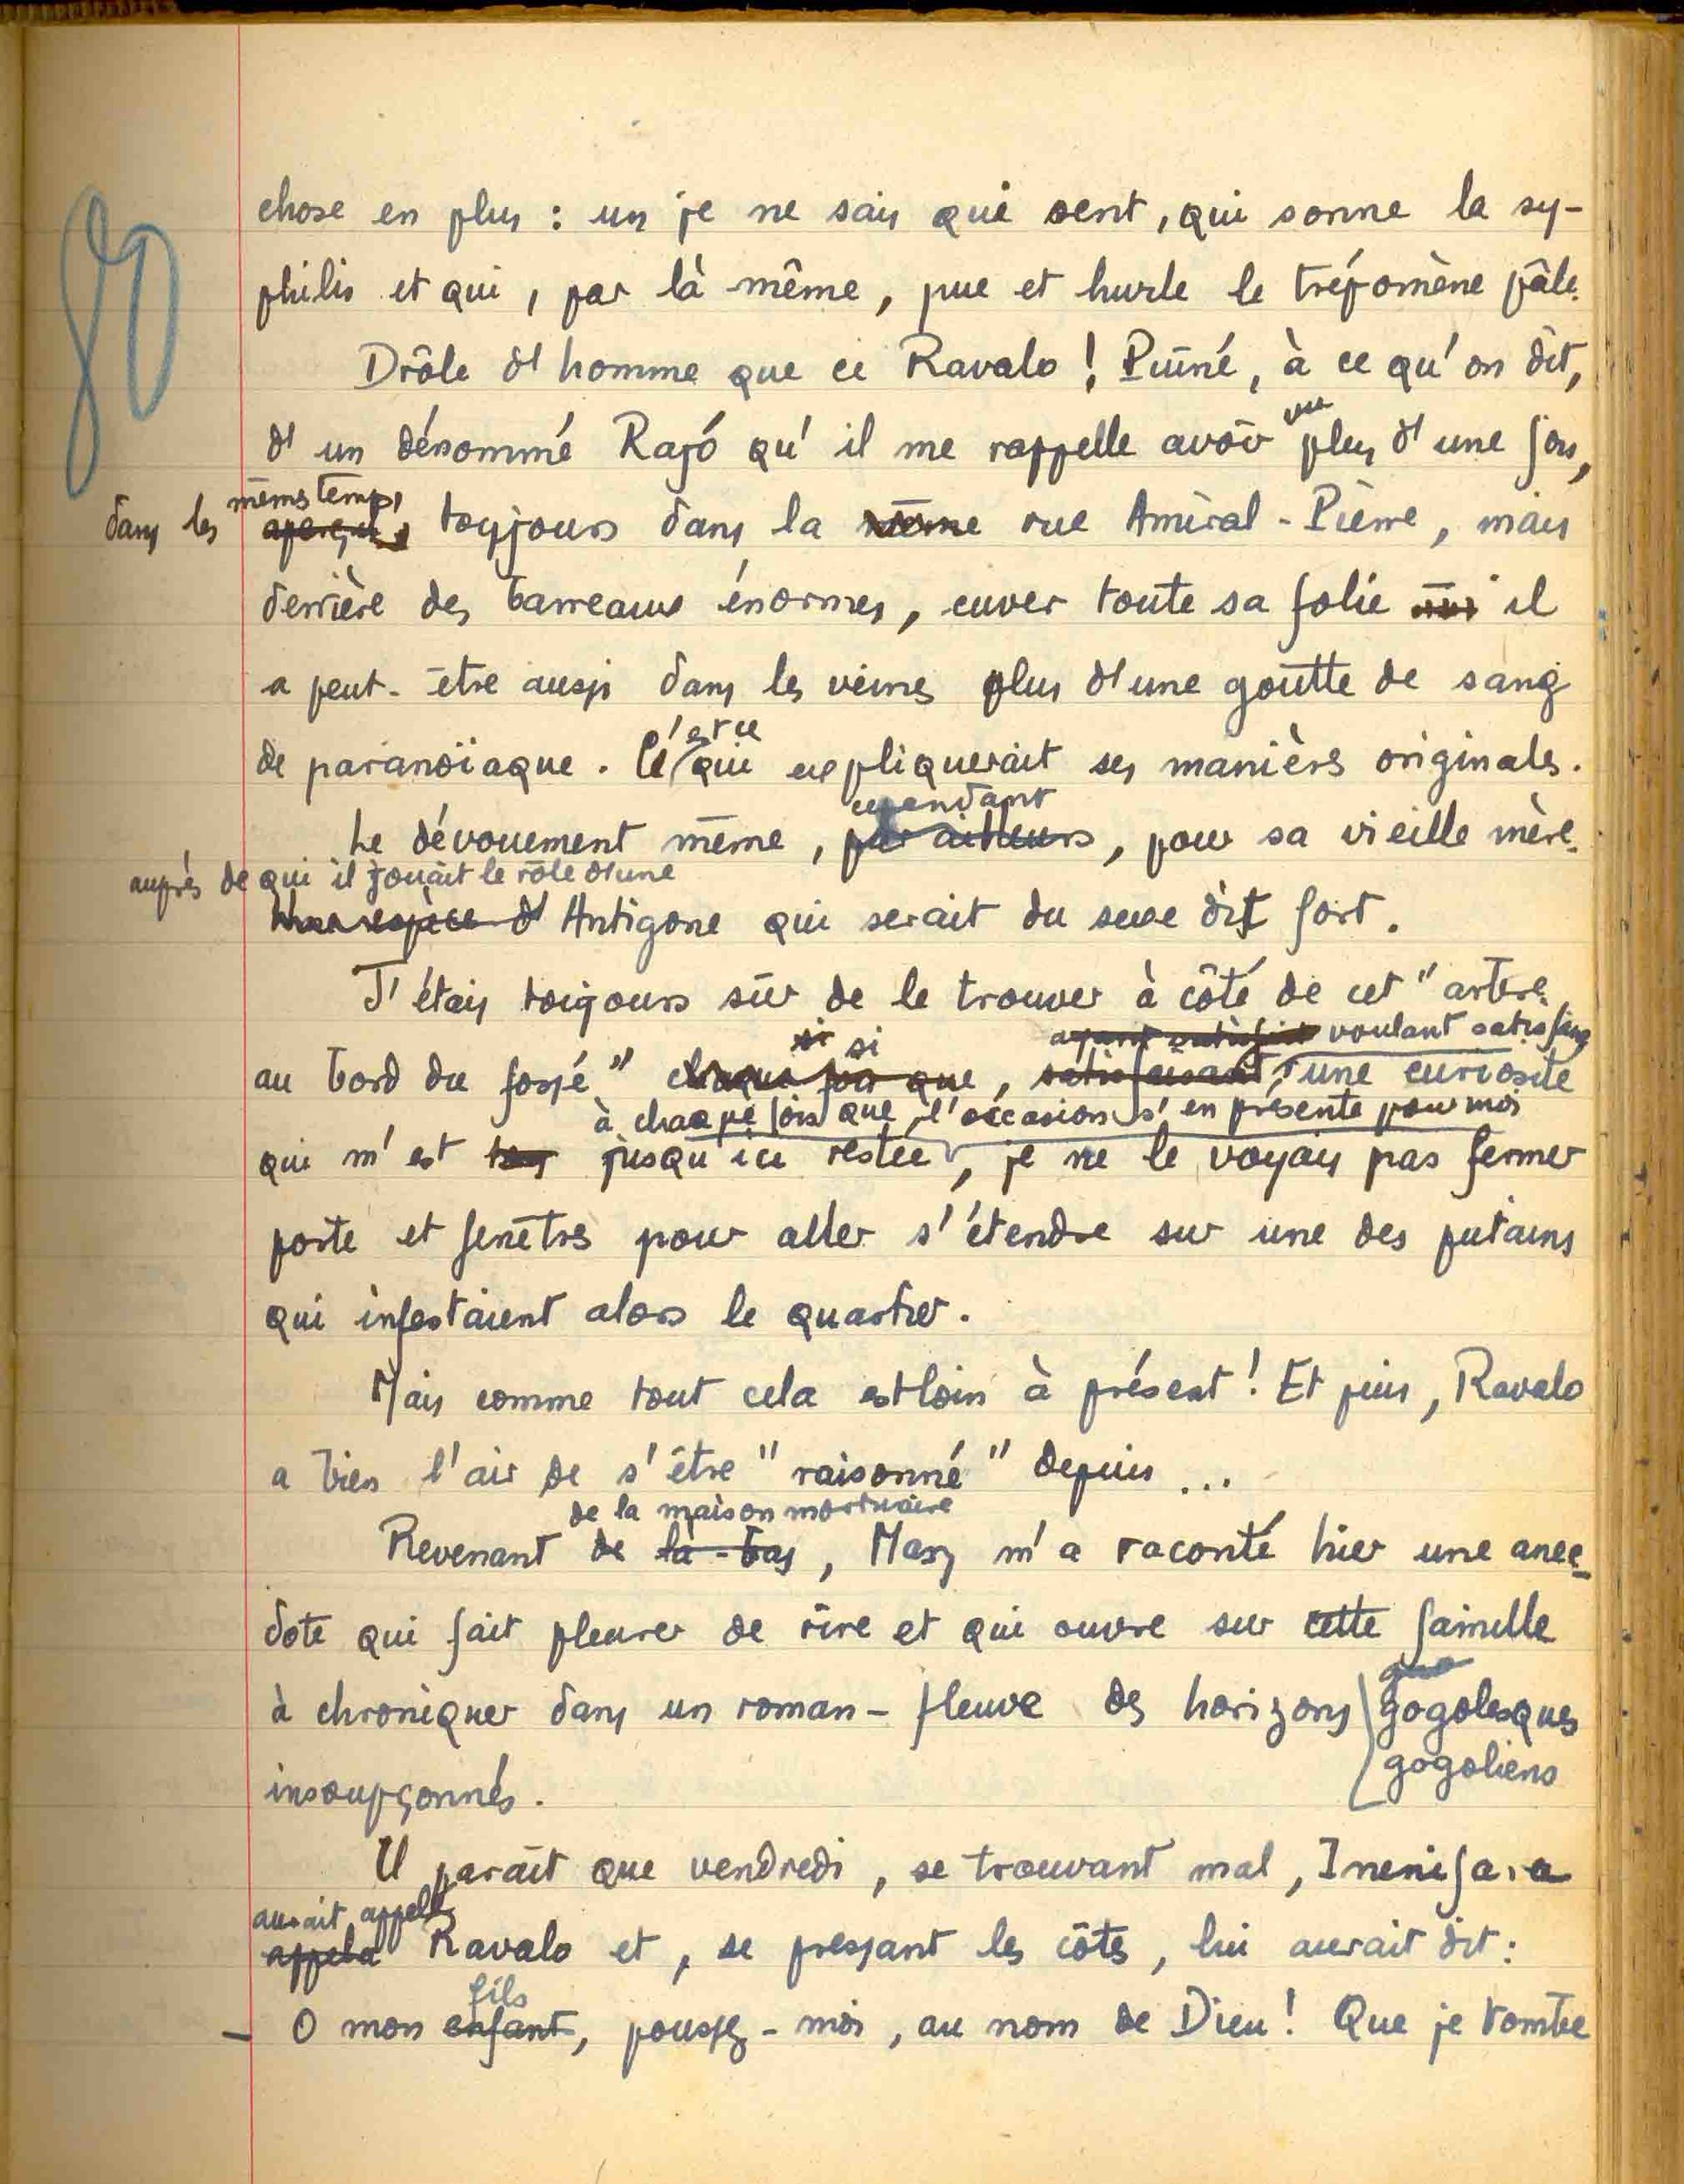 80
chose en plus : un je ne sais qui sent, qui sonne la sy-
philis et qui, par là même, pue et hurle le tréponème pâle.
Drôle d'homme que ce Ravalo ! Puîné, à ce qu'on dit,
vu
d'un dénommé Rajó qu'il me rappelle avoir plus d'une fois,
dans les mêmes temps,
aperçu, toujours dans la même rue Amiral-Pierre, mais
derrière des barreaux énormes, cuver toute sa folie il
a peut-être aussi dans les veines plus d'une goutte de sang
'est ce
de paranoïaque. Ce qui expliquerait ses manières originales.
cependant
Le dévouement même, par ailleurs, pour sa vieille mère.
auprès de qui il jouait le rôle d'une
Une espèce d'Antigone qui serait du sexe dit fort.
J'étais toujours sûr de le trouver à côté de cet "arbre
si si ayant satisfait voulant satisfaire
au bord du fossé" chaque fois que, satisfaisant, une curiosité
à chaque fois que l'occasion s'en présente pour moi
qui m'est jusqu'ici restée, je ne le voyais pas fermer
porte et fenêtres pour aller s'étendre sur une des putains
qui infestaient alors le quartier.
Mais comme tout cela est loin à présent ! Et puis, Ravalo
a bien l'air de s'être "raisonné" depuis ...
de la maison mortuaire
Revenant de là-bas, Mary m'a raconté hier une anec-
dote qui fait pleurer de rire et qui ouvre sur cette famille
à chroniquer dans un roman-fleuve des horizons gogolesques
gogoliens
insoupçonnés.
Il paraît que vendredi, se trouvant mal, Inenifara
aurait appelé
appela Ravalo et, se pressant les côtes, lui aurait dit :
fils
- O mon enfant, poussez-moi, au nom de Dieu ! Que je tombe